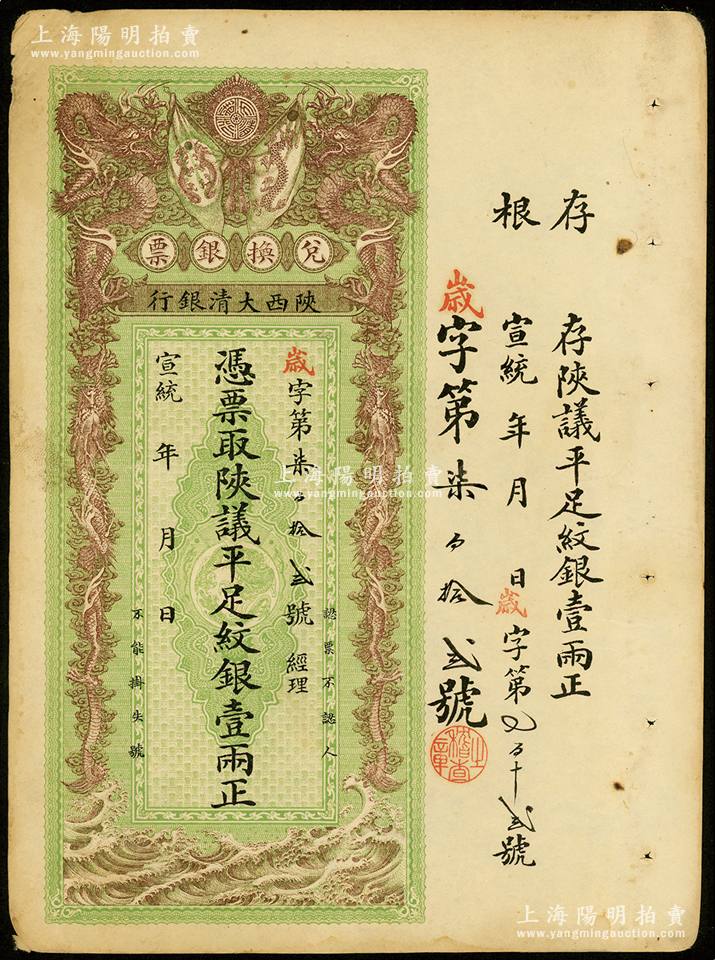 上海陽明拍賣
www.yangmingauction.com
存根
存陝議平足紋銀壹兩正
宣統 年 月 日歲字第
號
歲字第柒百拾貳號
稽查
兌換銀票
陝西大清銀行
認票不認人
歲字第柒百拾貳號 經理
憑票取陝議平足紋銀壹兩正
宣統 年 月 日
不能掛失號
上海陽明拍賣
www.yangmingauction.com
上海陽明拍賣
www.yangmingauction.com